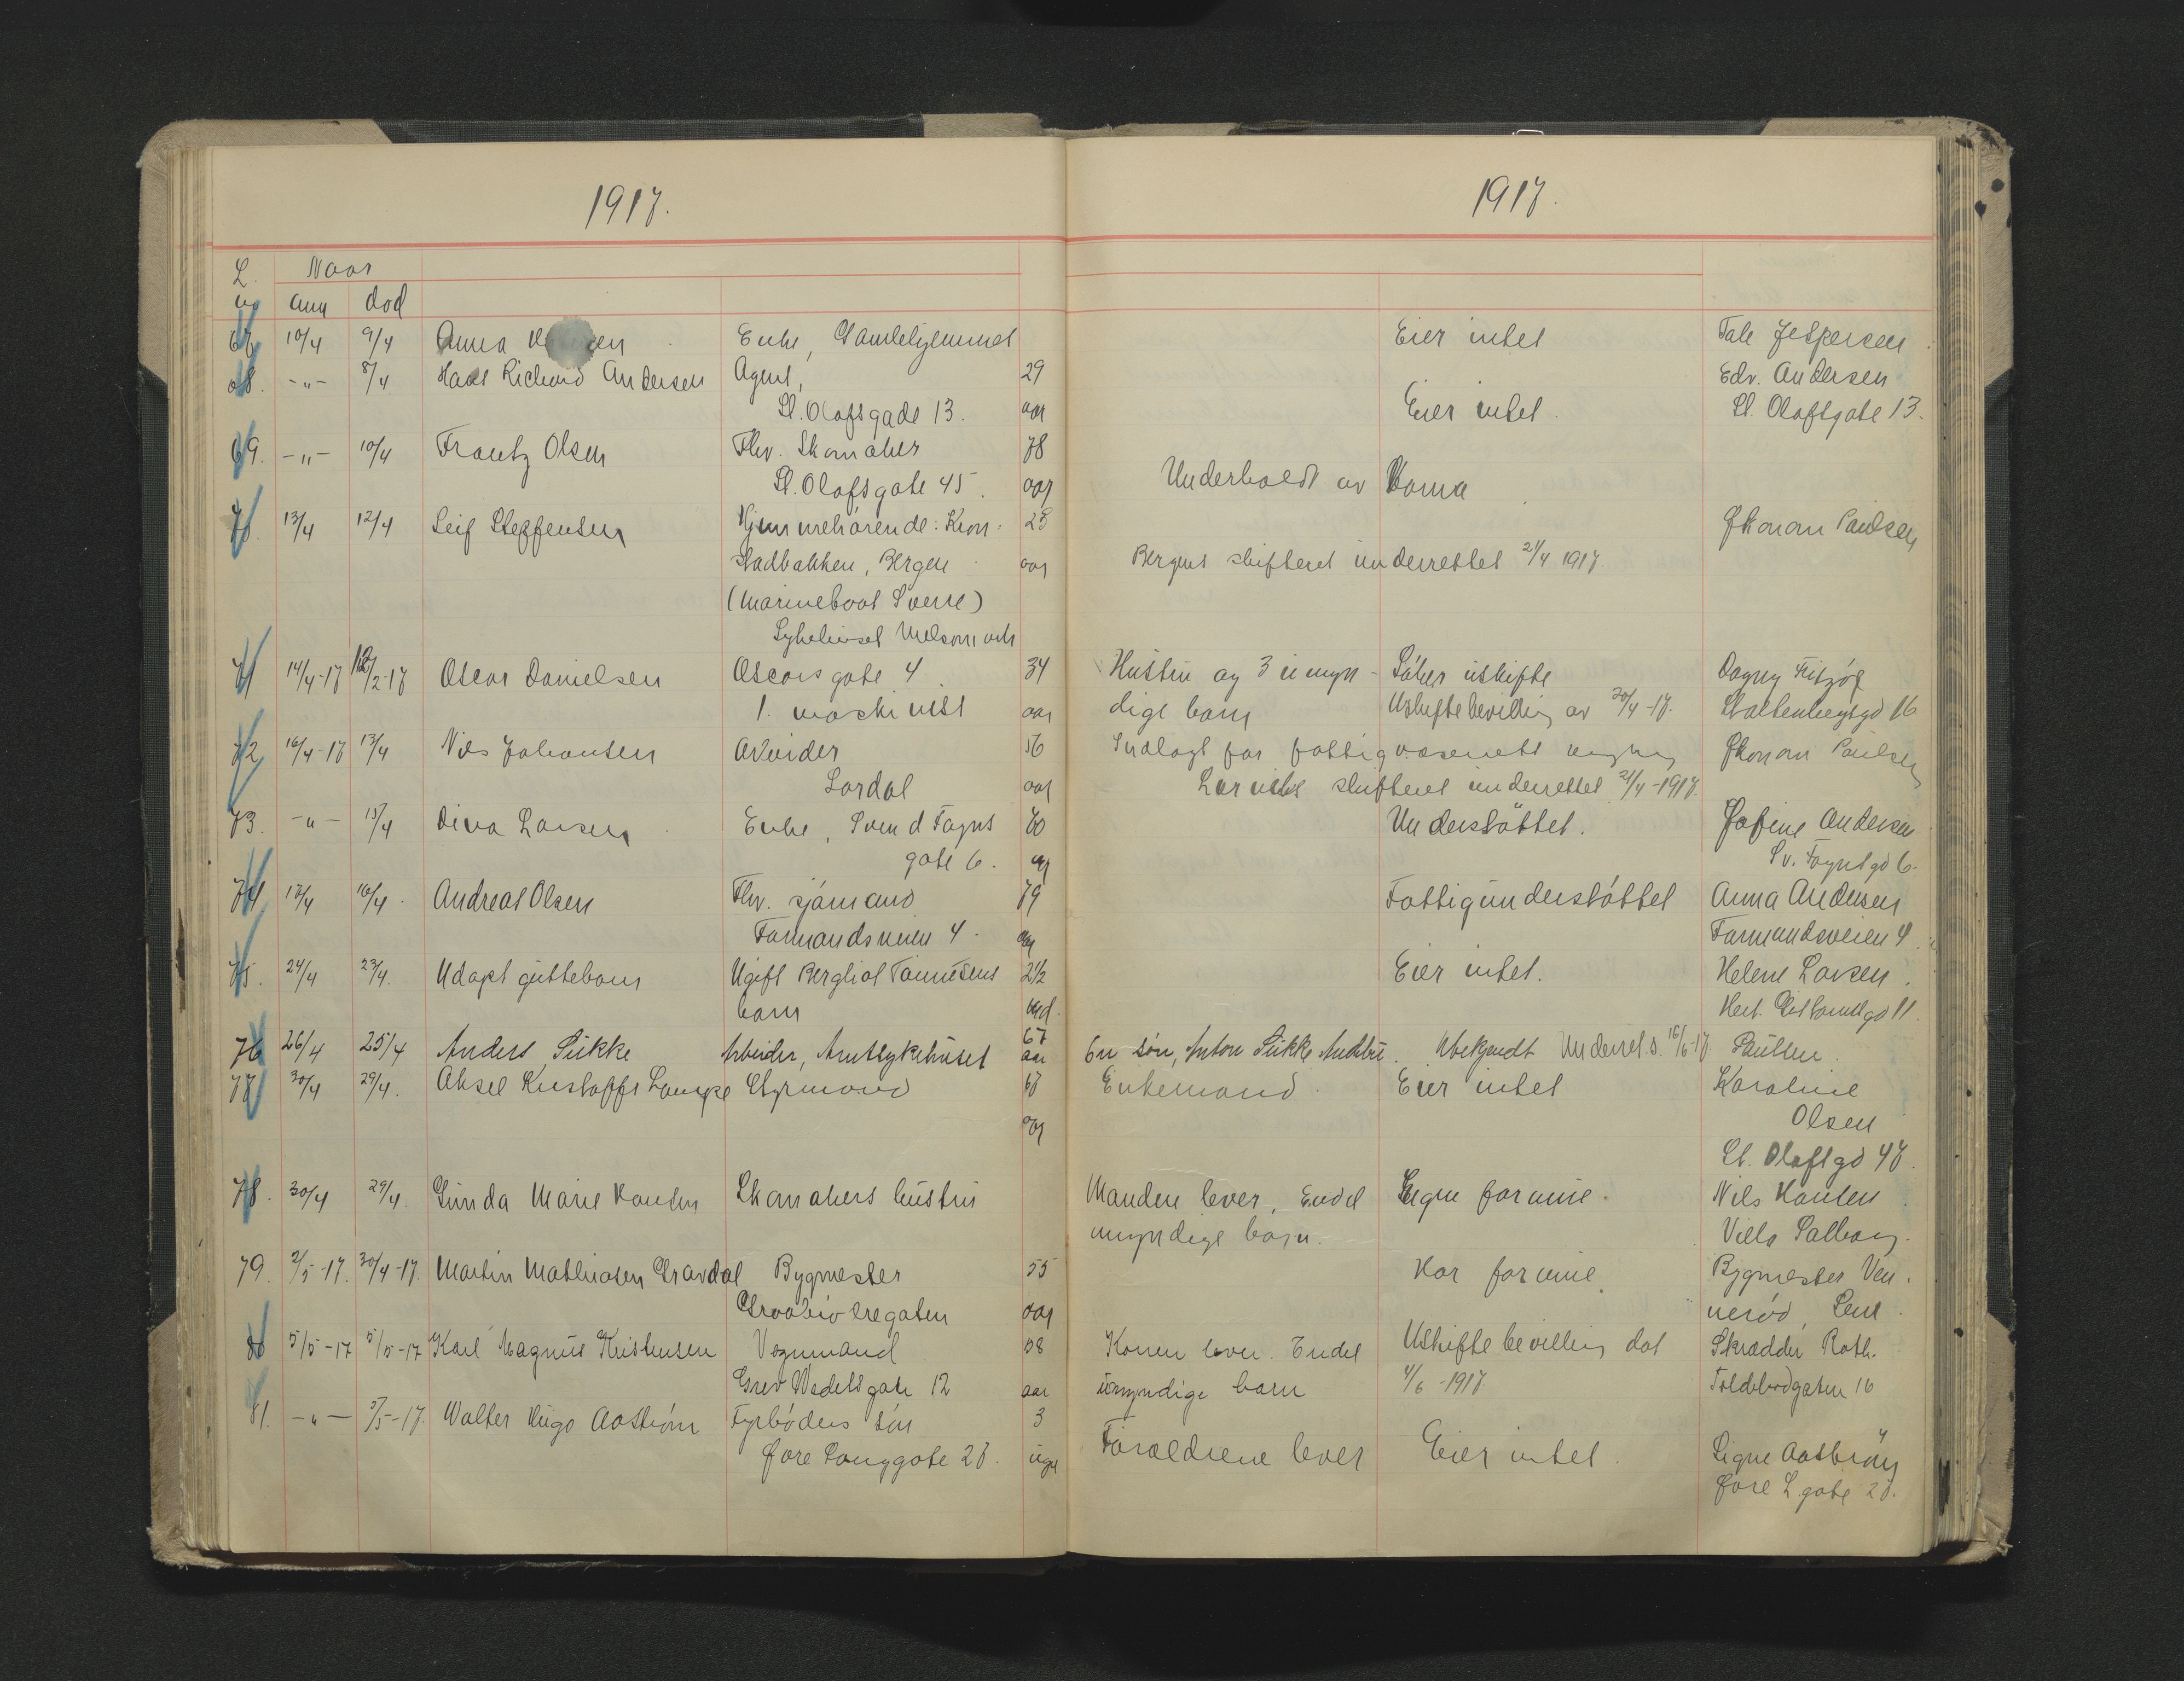 1917.
1917.
L. Naar
no anm død
67 10/4 9/4 Anna Enke, Gamlehjemmet Eier intet Tale Jespersen
68. -"- 8/4 Hans Richard Andersen Agent, 29 Edv. Andersen
St. Olafsgade 13. aar Eier intet. St. Olafsgate 13.
69. -"- 10/4 Frantz Olsen Fhv. Skomaker 78
St. Olafsgate 45. aar Underholdt av
70. 13/4 12/4 Leif Steffensen Hjemmehörende: Kron- 28 Økonom Paulsen
stadbakken, Bergen aar Bergens skifteret underrettet 21/4 1917.
(Marineboat Sverre)
Sykehuset
71 14/4-17 /2-17 Oscar Danielsen Oscarsgate 4. 34 Hustru og 3 umyn- Söker uskifte Dagny Fritzöf
1. maskinist aar dige barn Uskiftebevilling av 20/4-17. Stoltenbergsgd 16
72 16/4-17 13/4 Nils Johansen Arbeider 56 Indlagt for fattigvæsenets regning Økonom Paulsen
Lardal aar Larviks skifteret underrettet 21/4-1917.
73. -"- 15/4 Dina Larsen Enke, Svend Foyns 60 Understöttet. Jofine Andersen
gate 6. aar Sv. Foynsgd 6.
74 17/4 16/4. Andreas Olsen Fhv. sjömand 79 Fattigunderstöttet Anna Andersen
Farmandsveien 4. aar Farmandsveien 4.
75. 24/4 23/4. Udöpt guttebarn Ugift Bergliot Tönnesens 2 1/2 Eier intet. Helene Larsen.
barn md. gd 11.
76 26/4 25/4 Anders Sukke Arbeider, Amtssykehuset 67 aar En sön, Anton Sukke, Ubekjendt Underret. s. 16/6-17 Paulsen.
77 30/4 29/4. Aksel Kristoffer Lampe Styrmand 67 Enkemand. Eier intet Karoline
aar Olsen
St. Olafsgd 47.
78. 30/4 29/4. Gunda Marie Hansen Skomakers hustru Manden lever, Endel Ingen formue. Nils Hansen
umyndige barn. Villa Solberg.
79. 2/5-17. 30/4-17. Martin Mathiasen Gravdal Bygmester 55 Har formue. Bygmester Ven-
Graabrödregaten aar neröd, Sem.
80 5/5-17 5/5-17 Karl Magnus Kristensen Vognmand 58 Konen lever. Endel Uskiftebevilling dat Skrædder Roth.
Grev Wedelsgate 12 aar umyndige barn 4/6-1917 Toldbodgaten 16
81. -"- 5/5-17. Walter Hugo Aaström Fyrböders sön 3 Forældrene lever Eier intet. Signe Aaström
Øvre Langgate 28. uger Øvre L.gate 28.